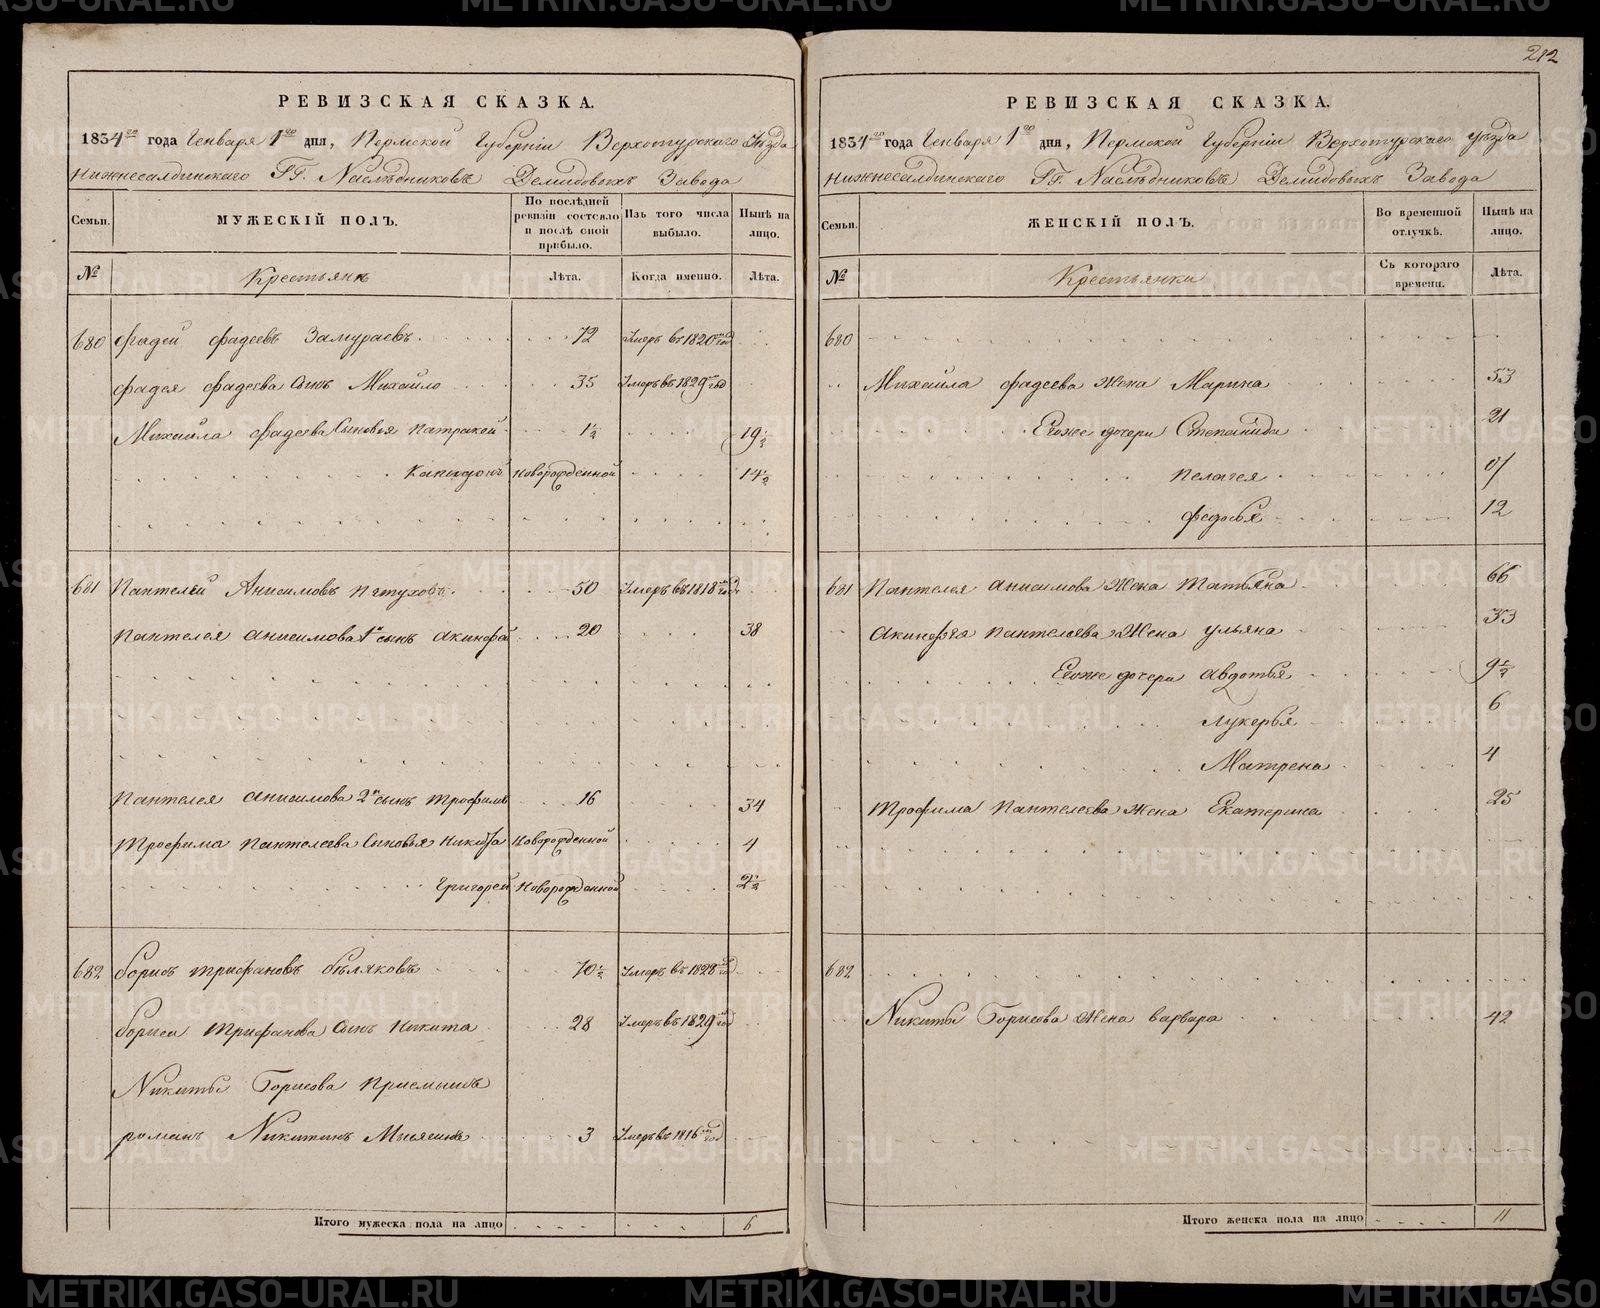 212
РЕВИЗСКАЯ СКАЗКА.
1834го года Генваря 1го дня, Пермской Губернiи Верхотурскаго Уѣзда
Нижнесалдинскаго ГГ. Наслѣдниковъ Демидовыхъ Завода
Семьи. МУЖЕСКIЙ ПОЛЪ. По послѣдней ревизiи состояло и послѣ оной прибыло. Изъ того числа выбыло. Нынѣ на лицо.
№ Крестьянъ Лѣта. Когда именно. Лѣта.
680 Фадей Фадеевъ Замураевъ 72 Умеръ въ 1820м год
Фадея Фадеева Сынъ Михайло 35 Умеръ въ 1829м год
Михайла Фадеева Сыновья Патракей 1½ 19½
Новорожденной 14½
681 Пантелей Анисимовъ Петуховъ 50 Умеръ въ 1818м год
Пантелея Анисимова 1й сынъ Акинфей 20 38
Пантелея Анисимова 2й сынъ Трофимъ 16 34
Трофима Пантелеева Сыновья Никита Новорожденной 4
Григорей Новорожденной 2½
682 Борисъ Трифановъ Бѣляковъ 70½ Умеръ въ 1828м год
Бориса Трифанова Сынъ Никита 28 Умеръ въ 1829м год
Никиты Борисова Приемышъ
Романъ Никитинъ 3 Умеръ въ 1816м год
Итого мужеска пола на лицо 6
РЕВИЗСКАЯ СКАЗКА.
1834го года Генваря 1го дня, Пермской Губернiи Верхотурскаго уѣзда
Нижнесалдинскаго ГГ. Наслѣдниковъ Демидовыхъ Завода
Семьи. ЖЕНСКIЙ ПОЛЪ. Во временной отлучкѣ. Нынѣ на лицо.
№ Крестьянки Съ котораго времени. Лѣта.
680
Михайла Фадеева Жена Марина 53
Егоже дочери Степанида 21
Пелагея
Федосья 12
681 Пантелея Анисимова Жена Татьяна 66
Акинфея Пантелеева Жена Ульяна 33
Егоже дочери Авдотья 9½
Лукерья 6
Матрена 4
Трофима Пантелеева Жена Екатерина 25
682
Никиты Борисова Жена Варвара 42
Итого женска пола на лицо 11
METRIKI.GASO-URAL.RU